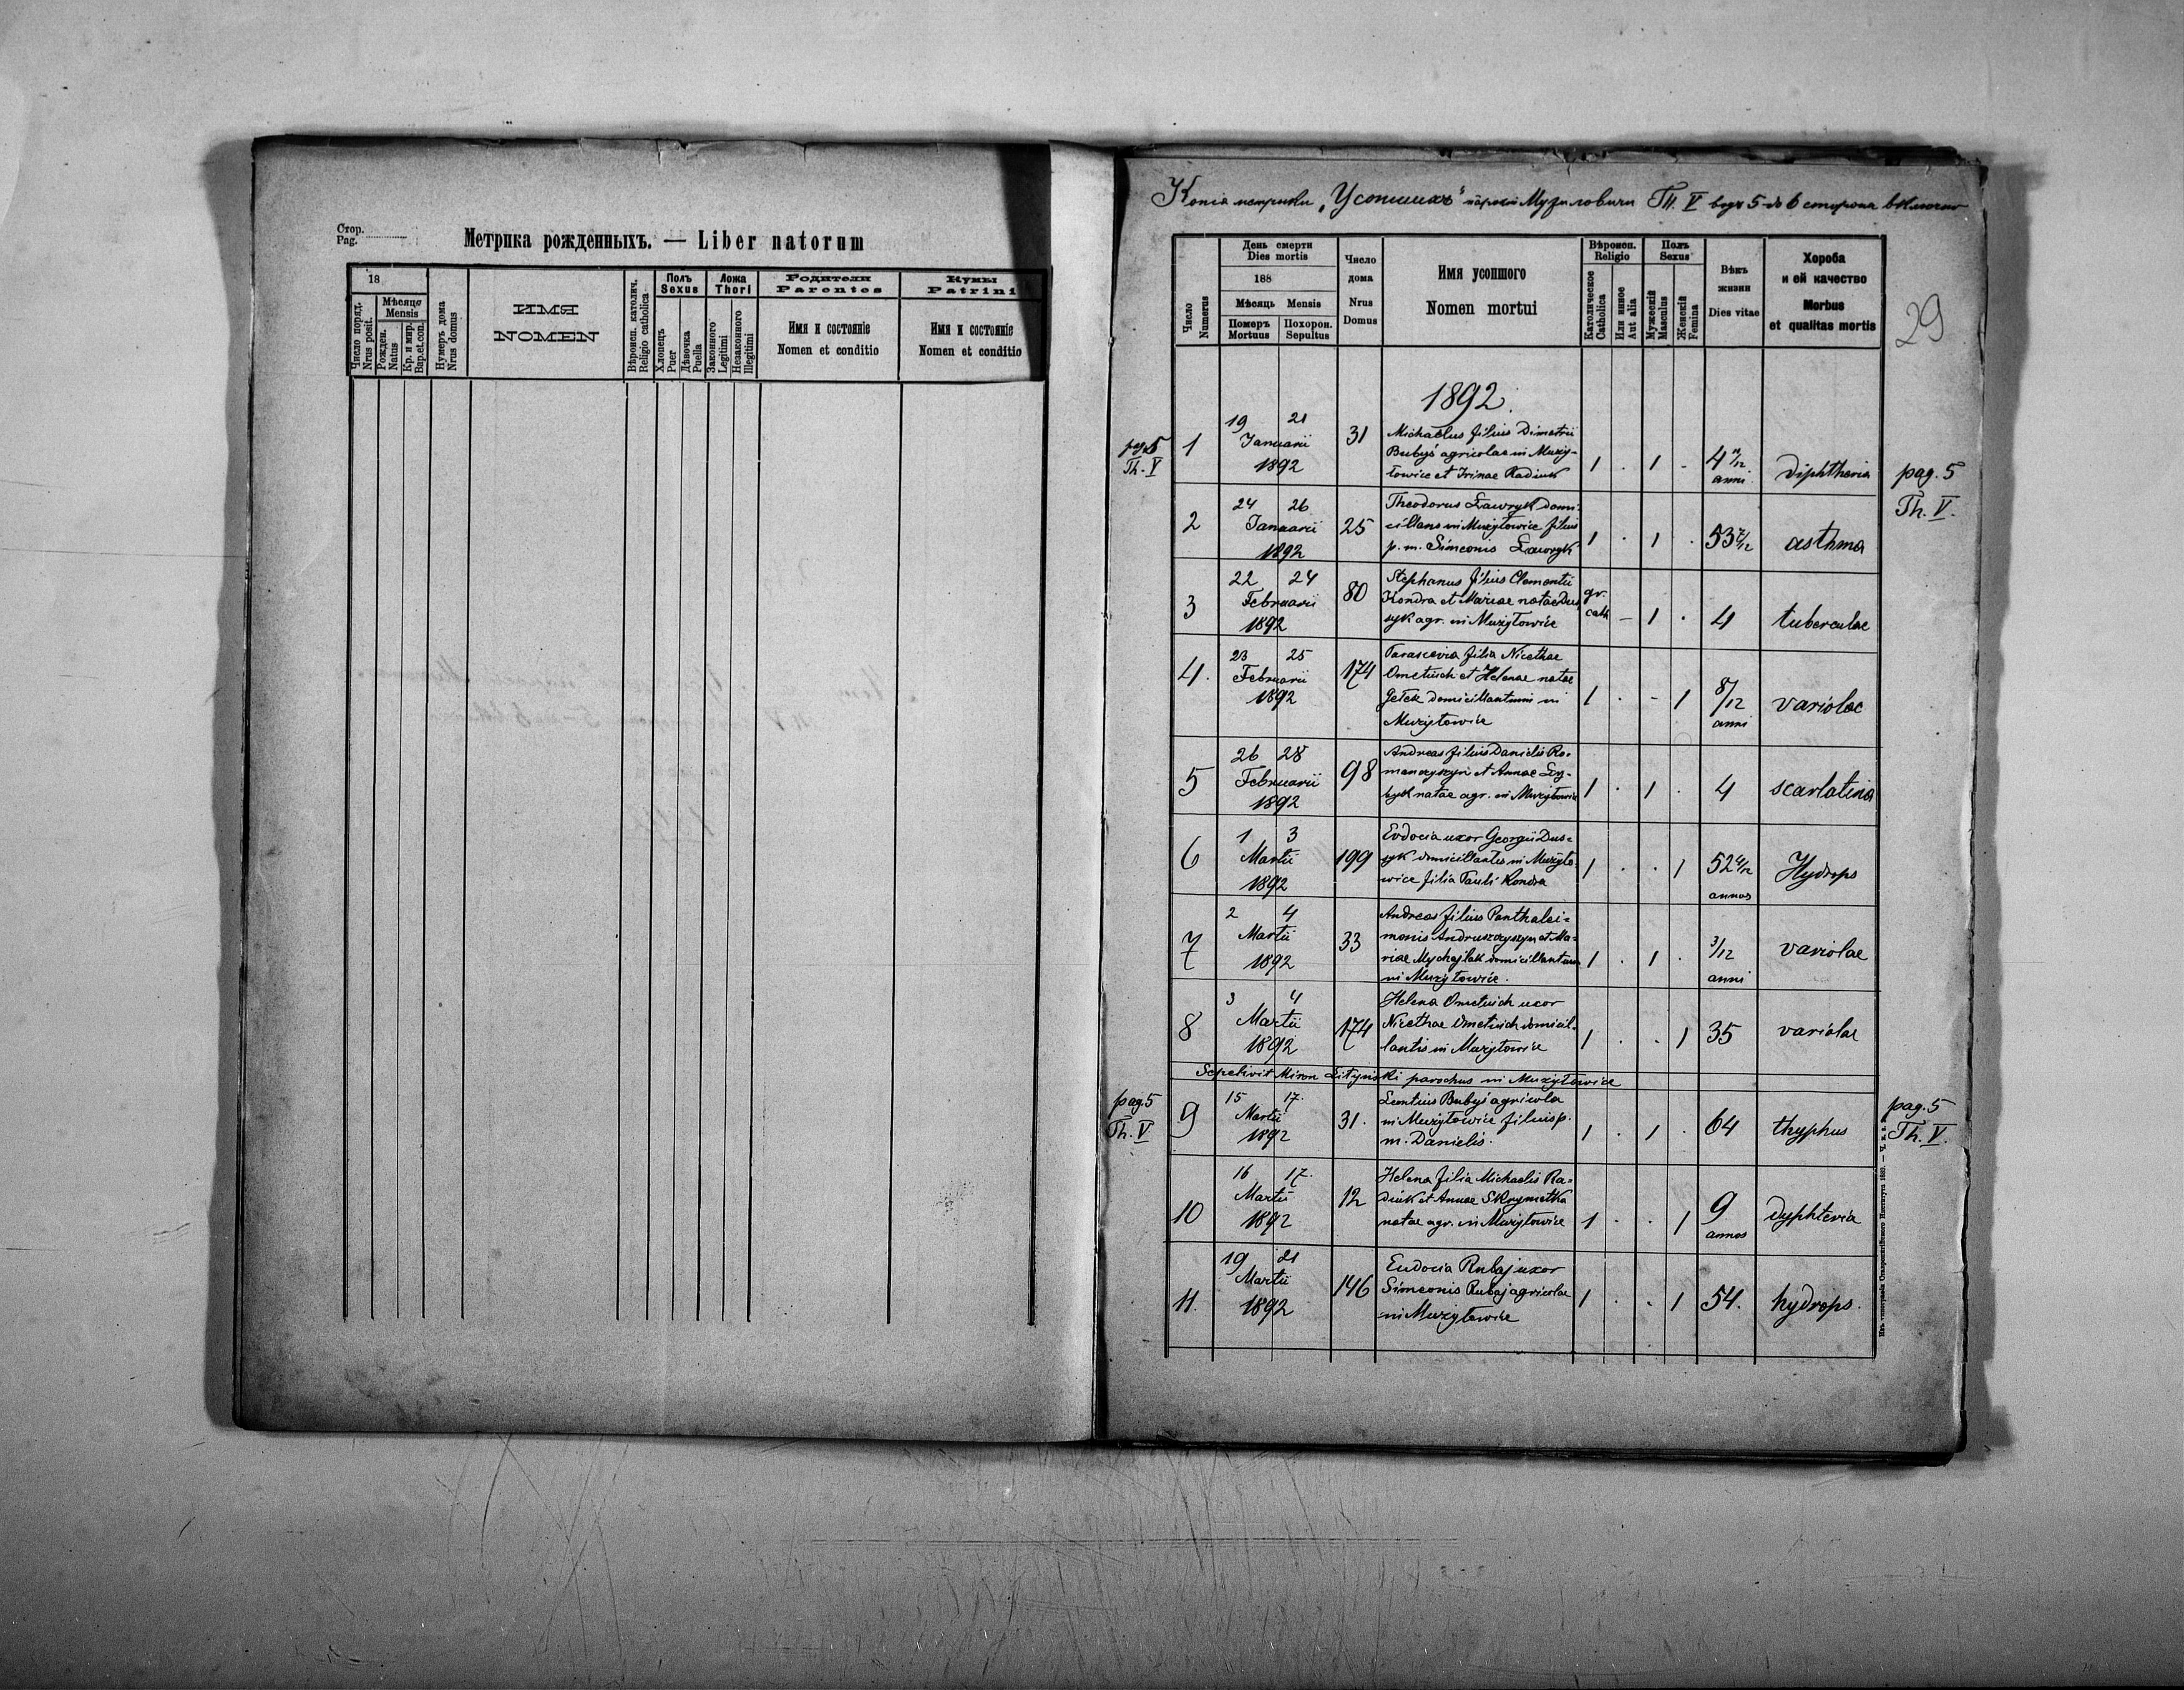 Стор.
Pag.
Метрика рожденныхъ. — Liber natorum
18
Число поряд.
Nrus posit.
Мѣсяцѣ
Mensis
Рожден.
Natus
Кр. и мир.
Bap. et con.
Нумеръ дома
Nrus domus
ИМЯ
NOMEN
Вѣроисп. католич.
Religio catholica
Полъ
Sexus
Хлопець
Puer
Дѣвочка
Puella
Ложа
Thori
Законного
Legitimi
Незаконного
Illegitimi
Родители
Parentes
Имя и состояніе
Nomen et conditio
Кумы
Patrini
Имя и состояніе
Nomen et conditio
Копія метрики „Усопших" парохіи Музиловичи Th. V водъ 5 до 6 сторона включно
29
Число
Numerus
День смерти
Dies mortis
188
Мѣсяць Mensis
Померъ
Mortuus
Похорон.
Sepultus
Число
дома
Nrus
Domus
Имя усопшого
Nomen mortui
Вѣроисп.
Religio
Католическое
Catholica
Или инное
Aut alia
Полъ
Sexus
Мужескій
Masculus
Женскій
Femina
Вѣкъ
жизни
Dies vitae
Хороба
и ей качество
Morbus
et qualitas mortis
1892.
pag. 5
Th. V
1
19 21
Januarii
1892
31
Michaëlus filius Dimetrii
Bubyś agricolae in Muży-
łowice et Irinae Radiuk
1 . 1 -
4 /12
anni
diphtheria
pag. 5
Th. V.
2
24 26
Januarii
1892
25
Theodorus Ławryk domi-
cillans in Mużyłowice filius
p. m. Simeonis Ławryk
1 . 1 .
53 7/12
asthma
3
22 24
Februarii
1892
80
Stephanus filius Clementii
Kondra et Mariae natae Dus
syk agr. in Mużyłowice
gr.
cath
- 1 .
4
tuberculae
4.
23 25
Februarii
1892
174
Parascevia filia Nicethae
Ometiuch et Helenae natae
domicillantium in
Mużyłowice
1 . - 1
8/12
anni
variolae
5
26 28
Februarii
1892
98
Andreas filius Danielis Ro=
manczyszyn et Annae
natae agr. in Mużyłowice
1 . 1 .
4
scarlatina
6
1 3
Martii
1892
199
Evdocia uxor Georgii Dus=
syk domicillantis in Mużyło-
wice filia Pauli Kondra
1 . . 1
52 4/12
annos
Hydrops
7
2 4
Martii
1892
33
Andreas filius Panthalei=
monis Andruszczyszyn et Ma=
riae Mychajlak domicillantium
in Mużyłowice.
1 . 1 .
3/12
anni
variolae
8
3 4
Martii
1892
174
Helena Ometiuch uxor
Nicethae Ometiuch domicil-
lantis in Mużyłowice
1 . . 1
35
variolae
Sepelivit Miron Lityński parochus in Mużyłowice
pag. 5
Th. V
9
15 17.
Martii
1892
31.
Leontius Bubyś agricola
in Mużyłowice filius p.
m. Danielis.
1 . 1 .
64
thyphus
pag. 5
Th. V.
10
16 17.
Martii
1892
12
Helena filia Michaelis Ra=
diuk et Annae Skrymetka
natae agr. in Mużyłowice
1 . . 1
9
annos
dyphteria
11.
19 21
Martii
1892
146
Eudocia Rubaj uxor
Simeonis Rubaj agricolae
in Mużyłowice
1 . . 1
54.
hydrops.
Изъ типографіи Ставропигійского Института 1889. — Ч. и к.